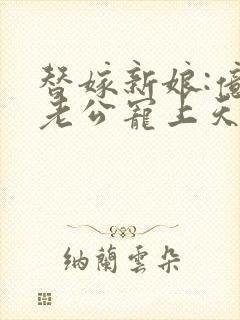 替嫁新娘:億
老公寵上天
納蘭雲朵